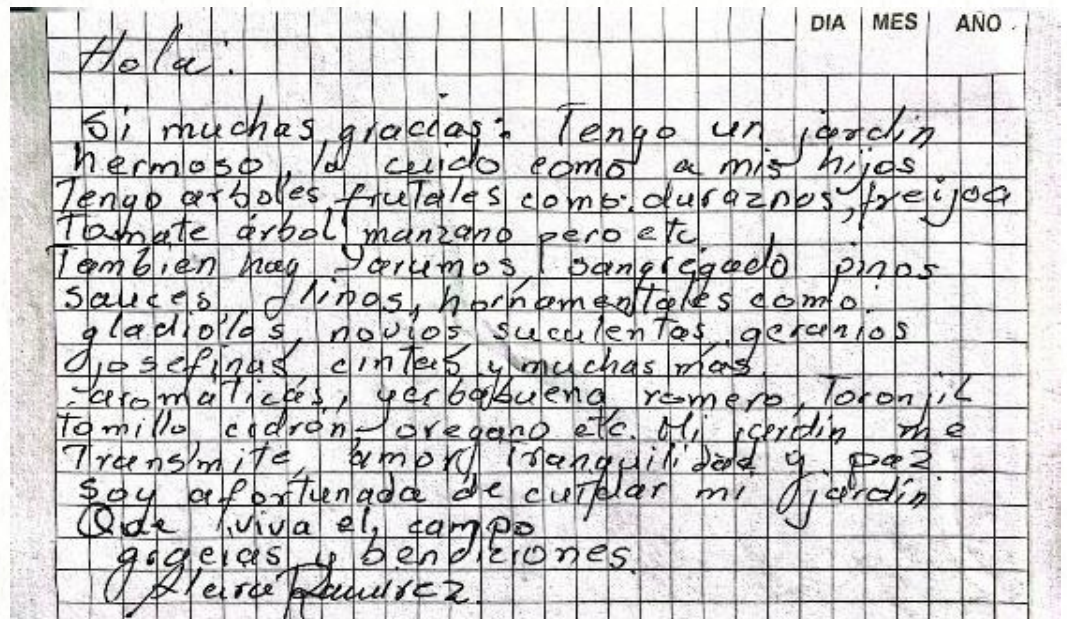 DIA MES AÑO
Hola:
Si muchas gracias: Tengo un jardin
hermoso, lo cuido como a mis hijos
Tengo arboles frutales como: duraznos, freijoa
Tomate árbol manzano pero etc
Tambien hay Yarumos, sangregado pinos
Sauces, hornamentales como:
gladiolas, novios suculentas, geranios
josefinas, cintas y muchas más.
aromaticas, yerbabuena romero, Toronjil
Tomillo cidrón, oregano etc. Mi jardin me
Transmite amor, tranquilidad y paz
Soy afortunada de cuidar mi jardín
Que viva el campo
gracias y bendiciones.
Ramirez